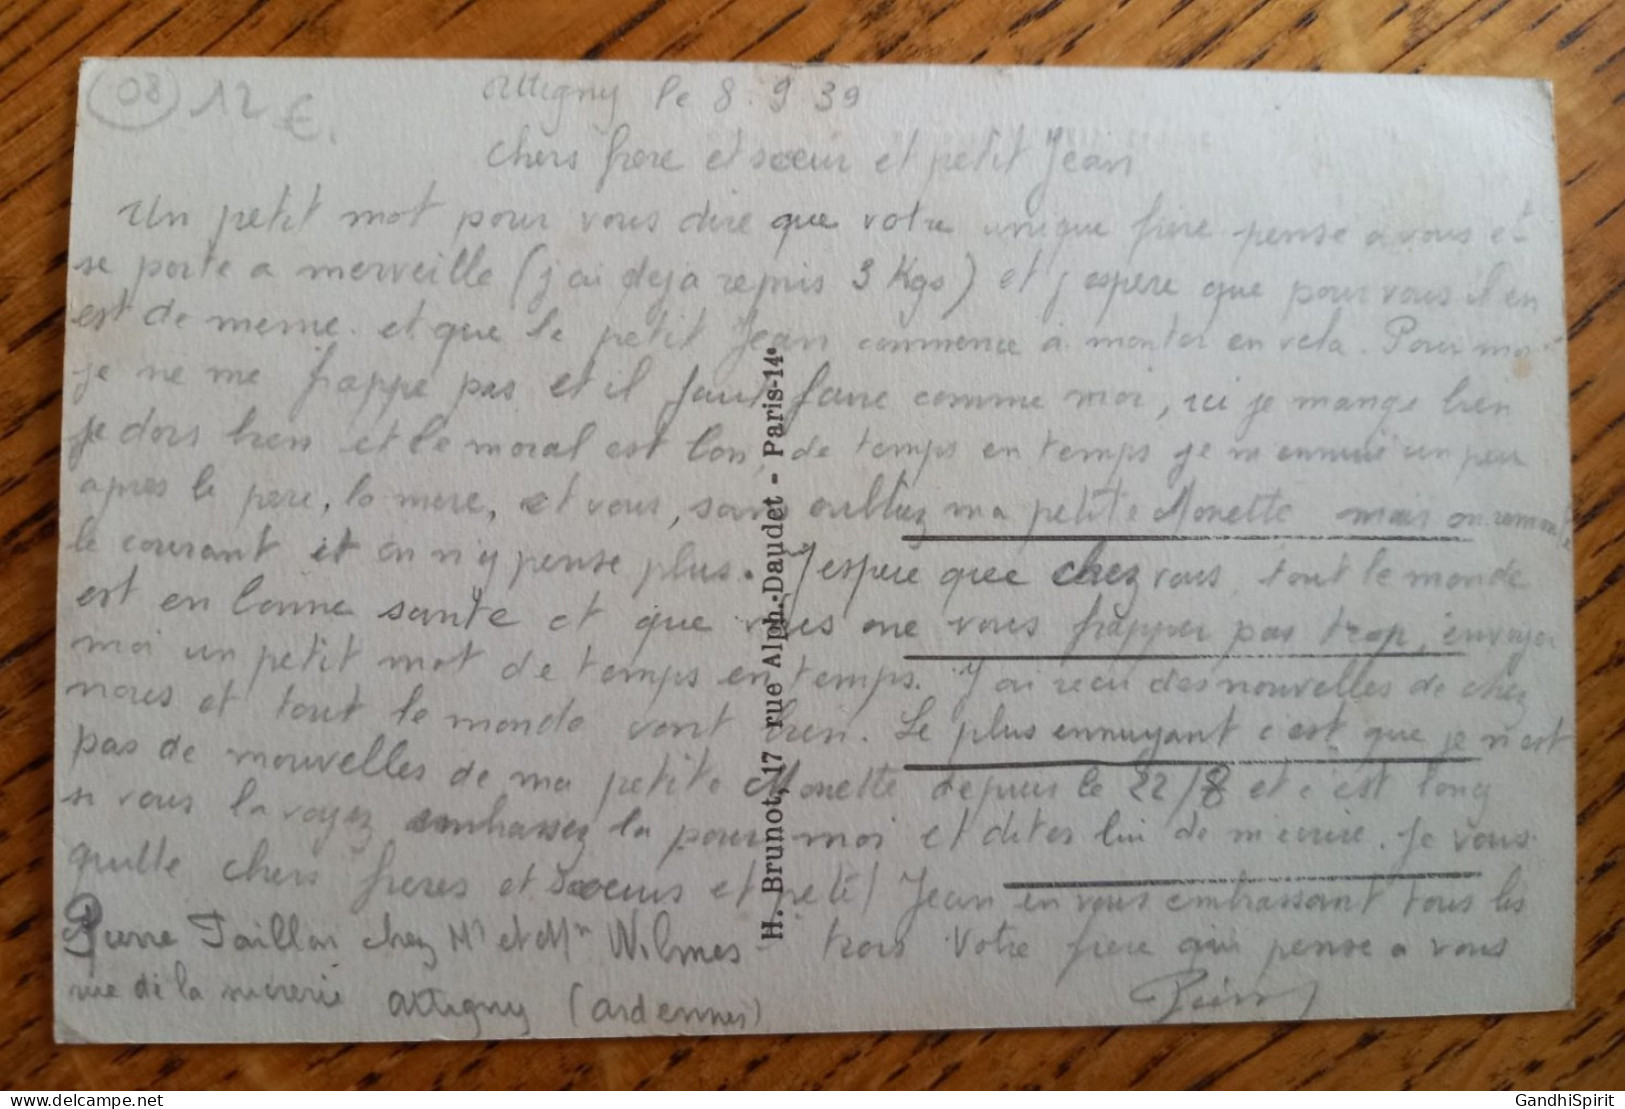 08 12 €.
Attigny le 8.9.39
Chers frere et sœur et petit Jean
Un petit mot pour vous dire que votre unique frere pense a vous et
se porte a merveille (j ai deja repris 3 Kgs) et j espere que pour vous il en
est de meme. et que le petit Jean commence a monter en velo. Pour moi
je ne me frappe pas et il faut faire comme moi, ici je mange bien
je dors bien et le moral est bon, de temps en temps je m ennuie un peu
apres le pere, la mere, et vous, sans oubliez ma petite Monette mais on remonte
le courant et on n y pense plus. J espere que chez vous, tout le monde
est en bonne sante et que vous ne vous frapper pas trop, envoyer
moi un petit mot de temps en temps. J ai recu des nouvelles de chez
nous et tout le monde vont bien. Le plus ennuyant c est que je n est
pas de nouvelles de ma petite Monette depuis le 22/8 et c est long
si vous la voyez embrassez la pour moi et dites lui de m ecrire. Je vous
quitte chers freres et sœurs et petit Jean en vous embrassant tous les
Pierre Taillar chez Mr et Mm Wilmes trois Votre frere qui pense a vous
rue de la sucrerie Attigny (Ardennes) Pierre
H. Brunot, 17 rue Alph.-Daudet - Paris-14e
GandhiSpirit